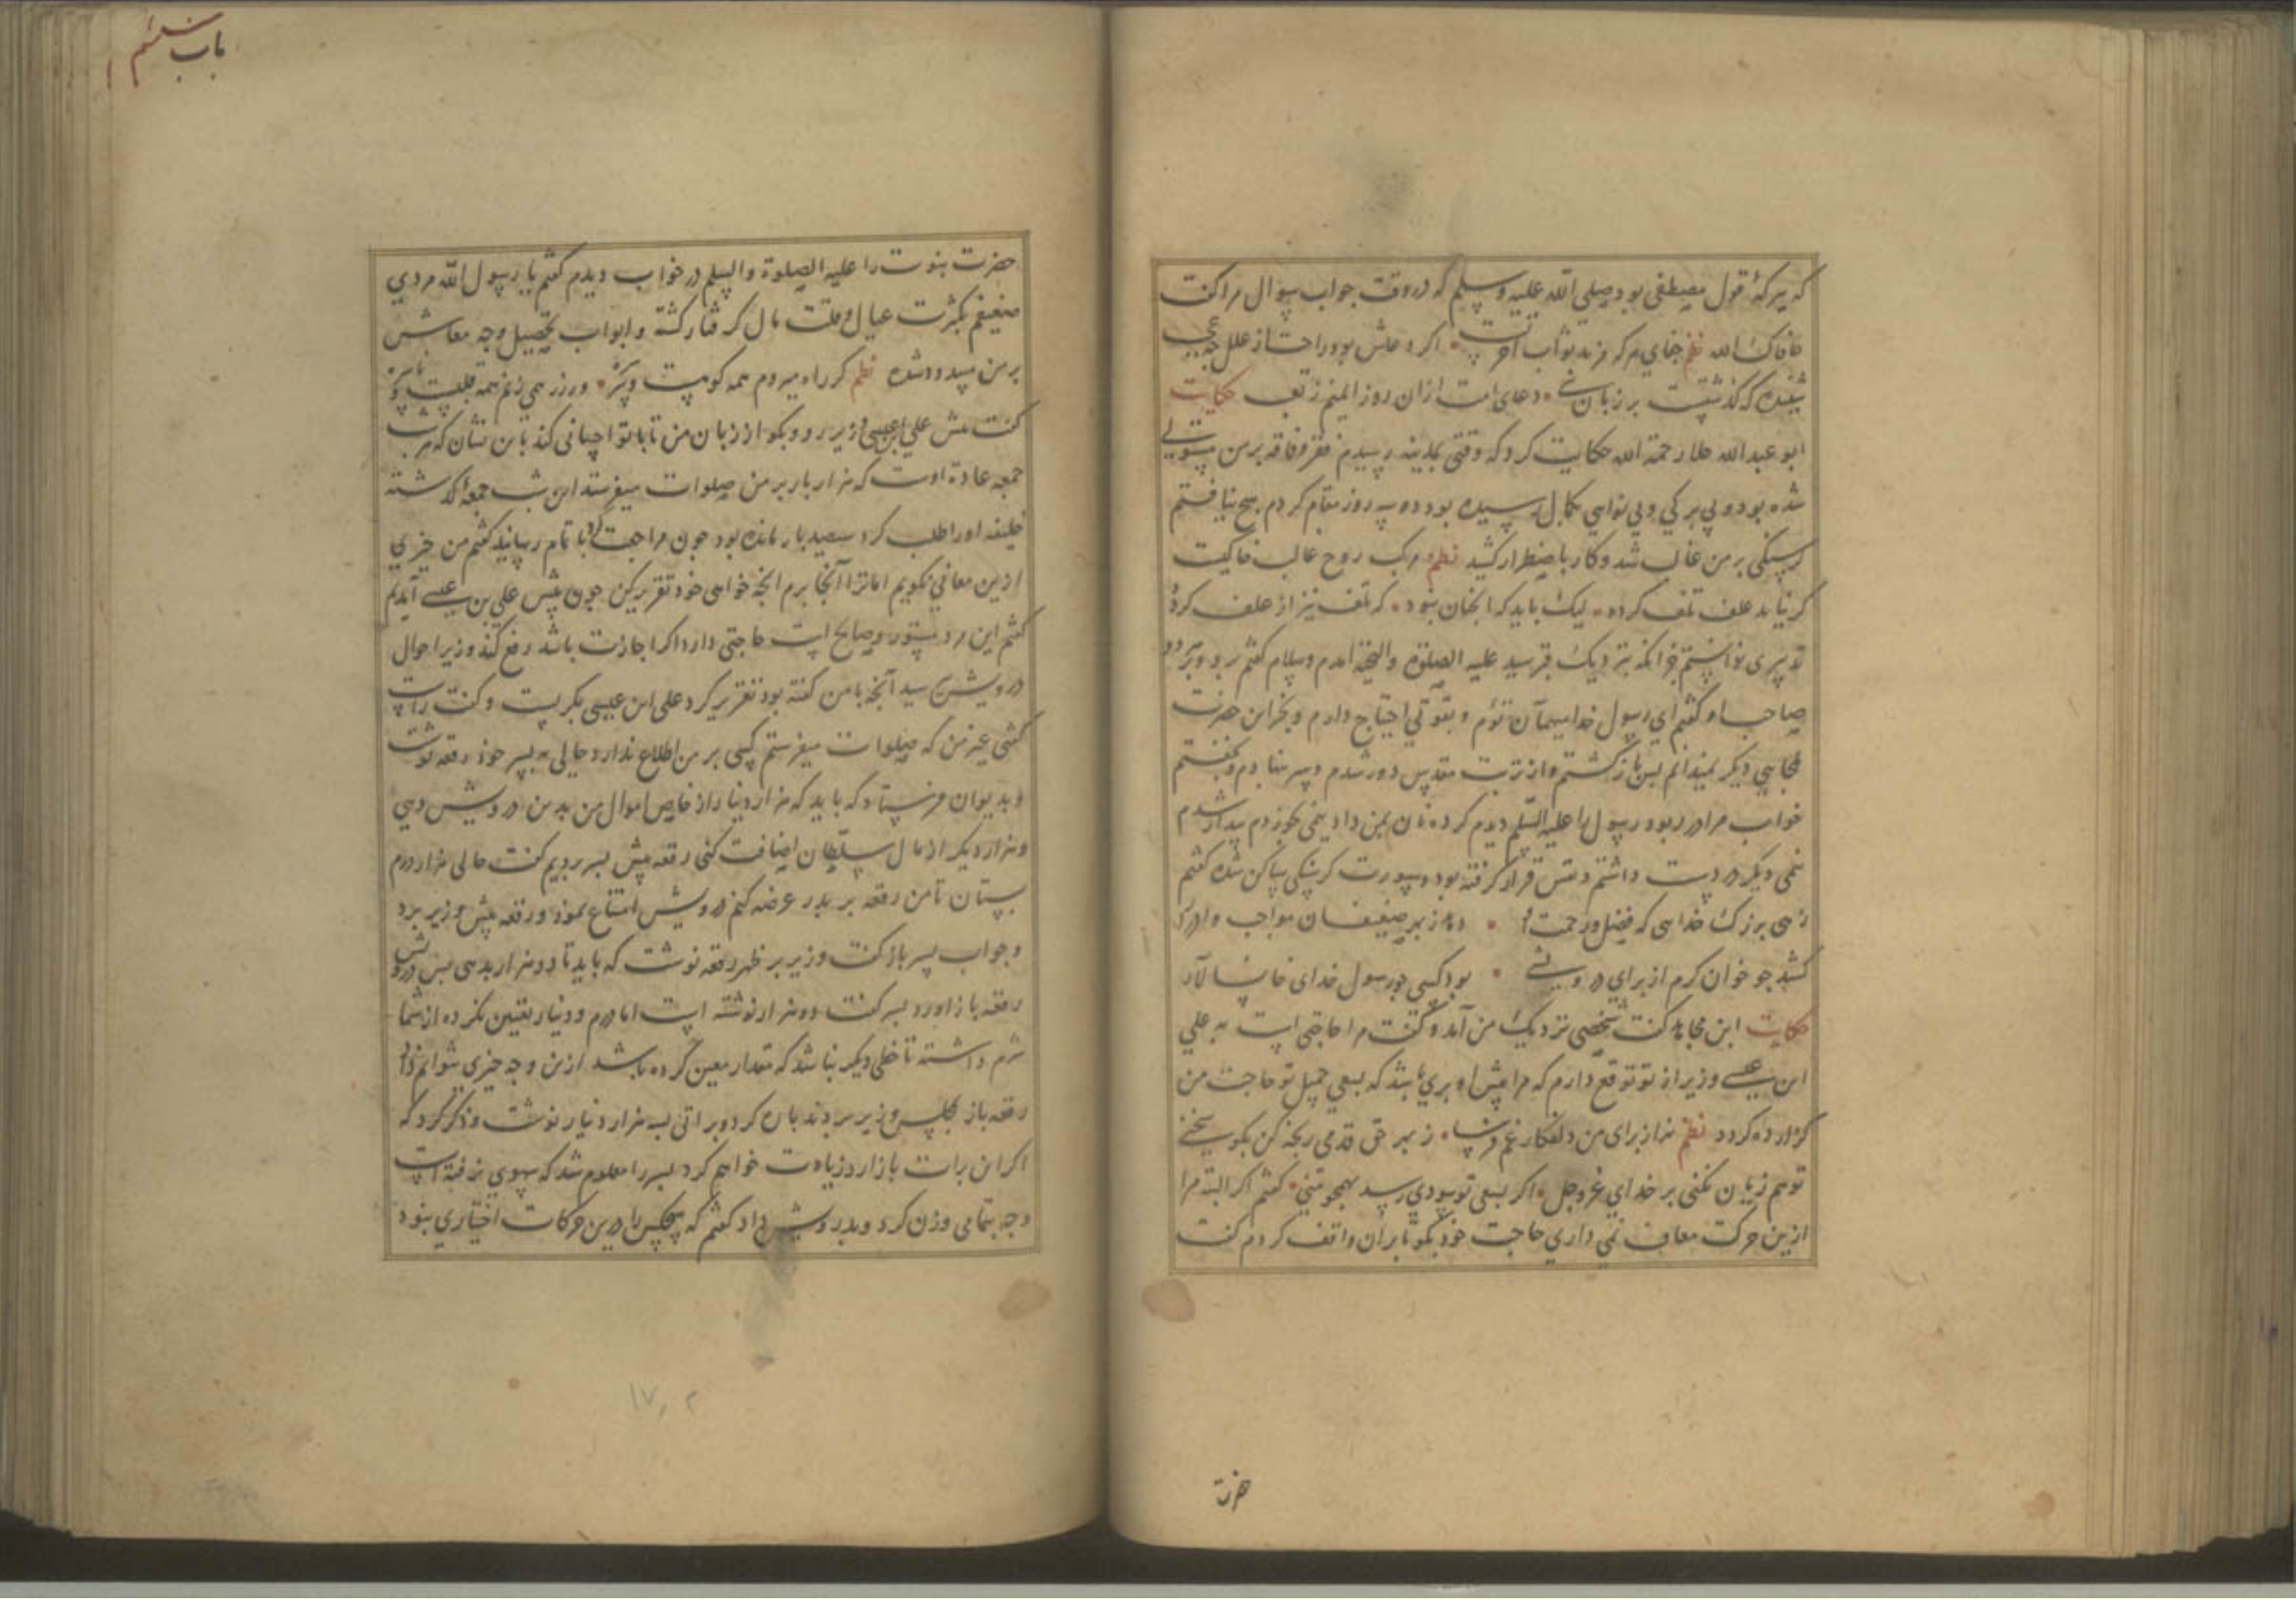 که ببرکهٔ قول مصطفی بود صلی الله علیه وسلم که در وقت جواب سوال مرا کفت
عافاک الله نظم
شنیده که کذشتست بر زبان دعای امت ازان روز ایمنم زتعب حکایت
ابو عبد الله جلا رحمة الله حکایت کرد که وقتی بمدینه رسیدم فقر وفاقه بر من مستولی
شده بود وبی برکی وبی نوایی بکمال رسیده بود دو سه روز مقام کردم هیچ نیافتم
کرسنکی بر من غالب شد وکار باضطرار کشید نظم مرکب روح قالب خاکیت
کر نیابد علف تلف کردد لیک باید که انچنان نبود که تلف نیز از علف کردد
تدبیری ندانستم جز انکه بنزدیک قبر سید علیه الصلوة والتحیة امدم وسلام کفتم بر و وبر دو
صاحب او وکفتم ای رسول خدا میهمان توام و بقوتی احتیاج دارم و بجز این حضرت
ملجایی دیکر نمیدانم پس باز کشتم و از تربت مقدس دور شدم و سر نهادم و بخفتم
خواب مرا در ربود رسول را علیه السلم دیدم کرده نان بمن داد نیمی بخوردم بیدار شدم
نیمی دیکر در دست داشتم ونفس قرار کرفته بود وسورت کرسنکی ساکن شده کفتم
زهی بزرک خدایی که فضل ورحمت او دهد زبهر ضعیفان مواجب وادرار
کشد چو خوان کرم از برای درویشی بود کسی چو رسول خدای خانسالار
حکایت ابن مجاهد کفت شخصی نزدیک من آمد و کفت مرا حاجتی است به علی
ابن عیسی وزیر از تو توقع دارم که مرا پیش او بری باشد که بسعی جمیل تو حاجت من
کزارده کردد نظم نه از برای من دلفکار غم فرسا زبهر حق قدمی رنجه کن بکو سخنی
تو هم زیان نکنی بر خدای عز وجل اکر بسعی تو سودی رسد بهمچو منی کفتم اکر البته مرا
ازین حرکت معاف نمی داری حاجت خود بکو تا بران واقف کردم کفت
حضرت
باب ششم
حضرت نبوت را علیه الصلوة والسلم در خواب دیدم کفتم یا رسول الله مردی
ضعیفم بکثرت عیال و قلت مال کرفتار کشته و ابواب تحصیل وجه معاش
بر من مسدود شده نظم کر راه میروم همه کوهست و
کفت پیش علی ابن عیسی وزیر رو و بکو از زبان من تا با تو احسانی کند باین نشان که هر شب
جمعه عادة اوست که هزار بار بر من صلوات میفرستد این شب جمعهٔ کذشته
خلیفه او را طلب کرد سیصد بار مانده بود چون مراجعت کرد با تمام رسانید کفتم من چیزی
ازین معانی نکویم اما ترا آنجا برم انچه خواهی خود تقریر کن چون پیش علی بن عیسی آمدیم
کفتم این مرد مستور وصالح است حاجتی دارد اکر اجازت باشد رفع کند وزیر احوال
درویش پرسید آنچه با من کفته بود تقریر کرد علی ابن عیسی بکریست و کفت راست
کفتی غیر من که صلوات میفرستم کسی بر من اطلاع ندارد حالی به پسر خود رقعه نوشت
و بدیوان فرستاد که باید که هزار دینار از خاص اموال من بدین درویش دهی
وهزار دیکر از مال سلطان اضافت کنی رقعه پیش پسر بردیم کفت حالی هزار درم
بستان تا من رقعه بر پدر عرضه کنم درویش امتناع نمود ورقعه پیش وزیر برد
وجواب پسر باز کفت وزیر بر ظهر رقعه نوشت که باید تا دو هزار بدهی پس درویش
رقعه باز اورد پسر کفت دو هزار نوشته است اما درم ودینار تعیین نکرده از شما
شرم داشته تا خطی دیکر نباشد که مقدار معین کرده باشد ازین وجه چیزی نتوانم داد
رقعه باز بمجلس وزیر بردند پاره کرد و براتی بسه هزار دینار نوشت و ذکر کرد که
اکر این برات باز ارد زیادت خواهم کرد پسر را معلوم شد که سهوی نرفته است
وجه بتمامی وزن کرد وبدرویش داد کفتم که هیچکس را درین حرکات اختیاری نبود